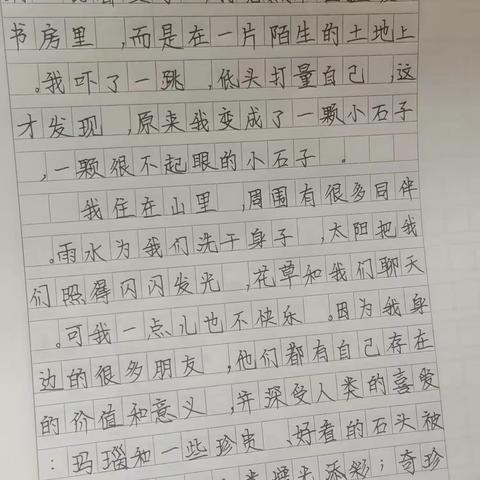 书房里，而是在一片陌生的土地上
。我吓了一跳，低头打量自己，这
才发现，原来我变成了一颗小石子
，一颗很不起眼的小石子。
我住在山里，周围有很多同伴
。雨水为我们洗干身子，太阳把我
们照得闪闪发光，花草和我们聊天
。可我一点儿也不快乐。因为我身
边的很多朋友，他们都有自己存在
的价值和意义，并深受人类的喜爱
：玛瑙和一些珍贵、好看的石头被
光添彩；奇珍